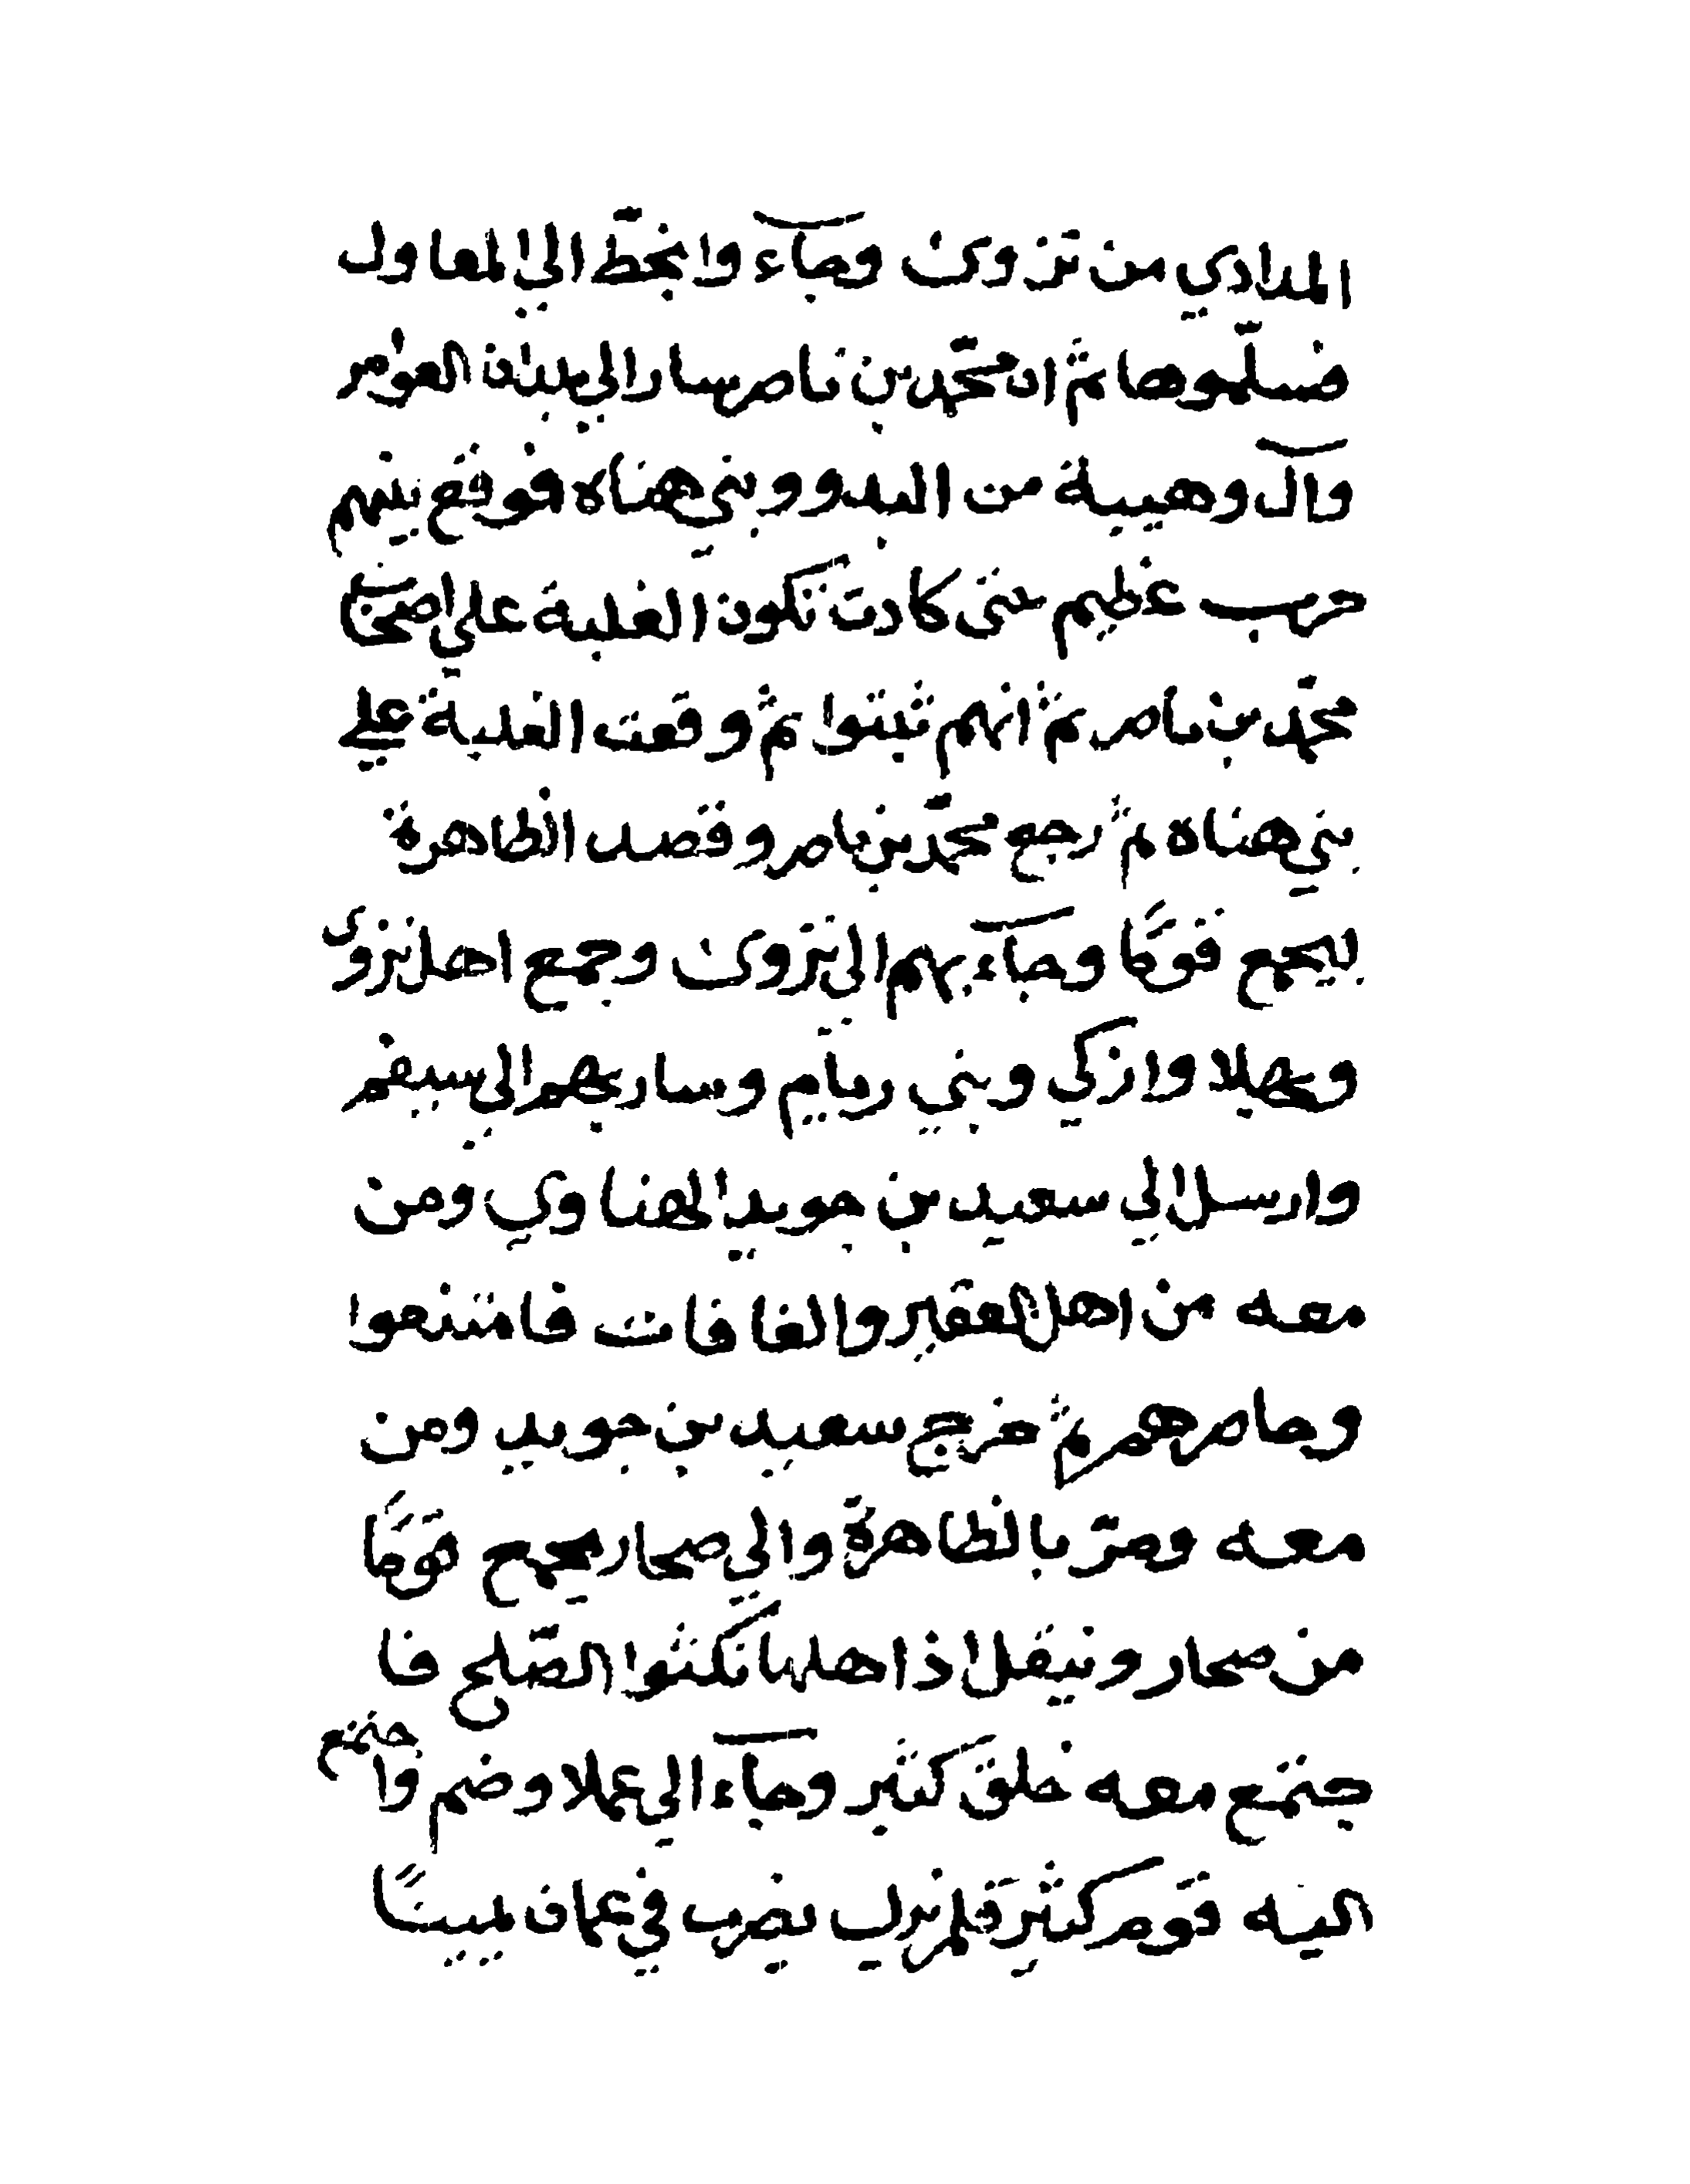 المدادي من نزوى وجآء وانحطّ الي المعاول
فسلّموها ثم ان محمّد بن ناصر سار الي بلدان العوامر
وآل وهيبة من البدو وبني هناه فوقع بينهم
حرب عظيم حتى كادت تكون الغلبة علي اصحاب
محمّد بن ناصر ثم انهم ثبتوا ثم وقعت الغلبة علي
بني هناه ثم رجع محمّد بن ناصر وقصد الظاهرة
ليجمع قومًا وجآء بهم الي نزوى وجمع اهل نزوى
وبهلا وازكي وبني ريام وسار بهم الي سيفم
وارسل الي سعيد بن جويد الهناوي ومن
معه من اهل العقير والغافات فامتنعوا
وحاصرهم ثم خرج سعيد بن جويد ومن
معه ومرّ بالظاهرة والي صحار يجمح قومًا
من صحار وينقل اذا هلها نكثوا الصّلح فا
جتمع معه خلق كثير وجآء الي عملا وضم واجتمع
اليه قوم كثير فلم يزل يضرب في عمان يمينًا